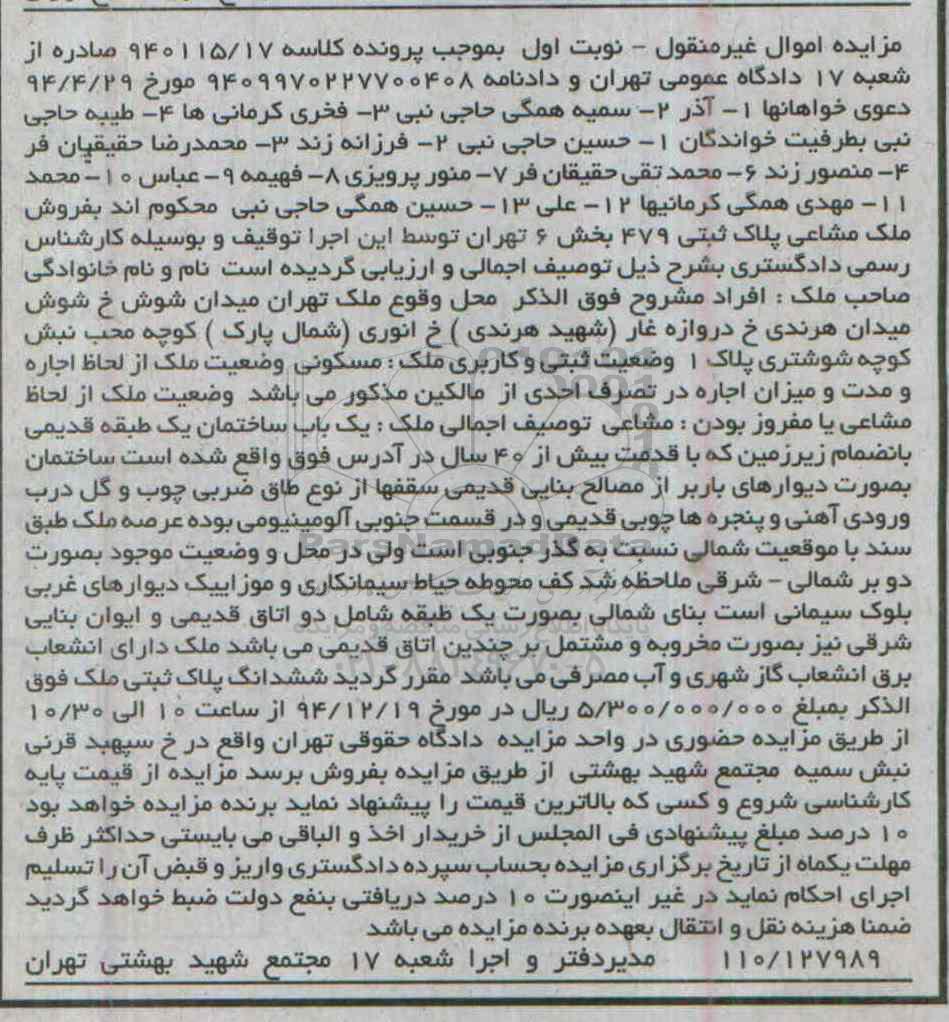 مزایده اموال غیرمنقول – نوبت اول بموجب پرونده کلاسه ۹۴۰۱۱۵/۱۷ صادره از
شعبه ۱۷ دادگاه عمومی تهران و دادنامه ۹۴۰۹۹۷۰۲۲۷۷۰۰۴۰۸ مورخ ۹۴/۴/۲۹
دعوی خواهانها ۱- آذر ۲- سمیه همگی حاجی نبی ۳- فخری کرمانی ها ۴- طیبه حاجی
نبی بطرفیت خواندگان ۱- حسین حاجی نبی ۲- فرزانه زند ۳- محمدرضا حقیقیان فر
۴- منصور زند ۶- محمد تقی حقیقان فر ۷- منور پرویزی ۸- فهیمه ۹- عباس ۱۰- محمد
۱۱- مهدی همگی کرمانیها ۱۲- علی ۱۳- حسین همگی حاجی نبی محکوم اند بفروش
ملک مشاعی پلاک ثبتی ۴۷۹ بخش ۶ تهران توسط این اجرا توقیف و بوسیله کارشناس
رسمی دادگستری بشرح ذیل توصیف اجمالی و ارزیابی گردیده است نام و نام خانوادگی
صاحب ملک : افراد مشروح فوق الذکر محل وقوع ملک تهران میدان شوش خ شوش
میدان هرندی خ دروازه غار (شهید هرندی ) خ انوری (شمال پارک ) کوچه محب نبش
کوچه شوشتری پلاک ۱ وضعیت ثبتی و کاربری ملک : مسکونی وضعیت ملک از لحاظ اجاره
و مدت و میزان اجاره در تصرف احدی از مالکین مذکور می باشد وضعیت ملک از لحاظ
مشاعی یا مفروز بودن : مشاعی توصیف اجمالی ملک : یک باب ساختمان یک طبقه قدیمی
بانضمام زیرزمین که با قدمت بیش از ۴۰ سال در آدرس فوق واقع شده است ساختمان
بصورت دیوارهای باربر از مصالح بنایی قدیمی سقفها از نوع طاق ضربی چوب و گل درب
ورودی آهنی و پنجره ها چوبی قدیمی و در قسمت جنوبی آلومینیومی بوده عرصه ملک طبق
سند با موقعیت شمالی نسبت به گذر جنوبی است ولی در محل و وضعیت موجود بصورت
دو بر شمالی – شرقی ملاحظه شد کف محوطه حیاط سیمانکاری و موزاییک دیوارهای غربی
بلوک سیمانی است بنای شمالی بصورت یک طبقه شامل دو اتاق قدیمی و ایوان بنایی
شرقی نیز بصورت مخروبه و مشتمل بر چندین اتاق قدیمی می باشد ملک دارای انشعاب
برق انشعاب گاز شهری و آب مصرفی می باشد مقرر گردید ششدانگ پلاک ثبتی ملک فوق
الذکر بمبلغ ۵/۳۰۰/۰۰۰/۰۰۰ ریال در مورخ ۹۴/۱۲/۱۹ از ساعت ۱۰ الی ۱۰/۳۰
از طریق مزایده حضوری در واحد مزایده دادگاه حقوقی تهران واقع در خ سپهبد قرنی
نبش سمیه مجتمع شهید بهشتی از طریق مزایده بفروش برسد مزایده از قیمت پایه
کارشناسی شروع و کسی که بالاترین قیمت را پیشنهاد نماید برنده مزایده خواهد بود
۱۰ درصد مبلغ پیشنهادی فی المجلس از خریدار اخذ و الباقی می بایستی حداکثر ظرف
مهلت یکماه از تاریخ برگزاری مزایده بحساب سپرده دادگستری واریز و قبض آن را تسلیم
اجرای احکام نماید در غیر اینصورت ۱۰ درصد دریافتی بنفع دولت ضبط خواهد گردید
ضمنا هزینه نقل و انتقال بعهده برنده مزایده می باشد
۱۱۰/۱۲۷۹۸۹ مدیردفتر و اجرا شعبه ۱۷ مجتمع شهید بهشتی تهران
ParsNamadData